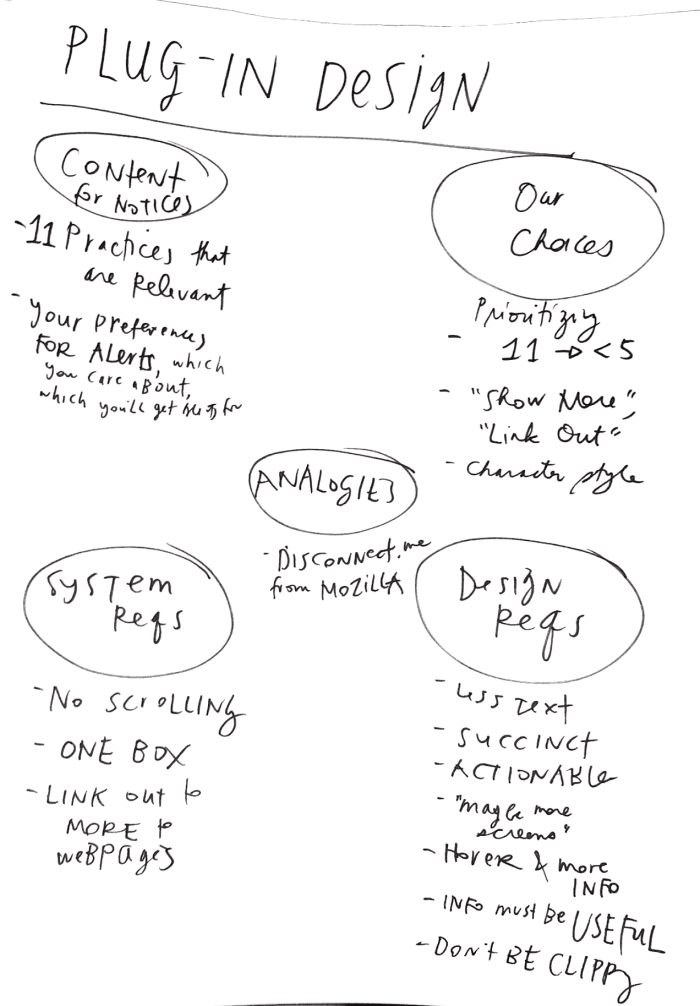 PLUG-IN DESIGN
CONTENT
for NOTICES
- 11 Practices that
are Relevant
- your preferences
FOR ALERTS, which
you care ABOUT,
which you'll get for
Our
Choices
Prioritizing
- 11 → < 5
- "Show More",
"Link Out"
- Character style
ANALOGIES
- DISCONNECT.me
from MOZILLA
SYSTEM
Reqs
- No SCROLLING
- ONE BOX
- LINK out to
MORE to
WEBPAGES
DESIGN
Reqs
- Less Text
- SUCCINCT
- ACTIONABLE
- "maybe more
screens"
- HOVER & more
INFO
- INFO must be USEFUL
- DON'T BE CLIPPY